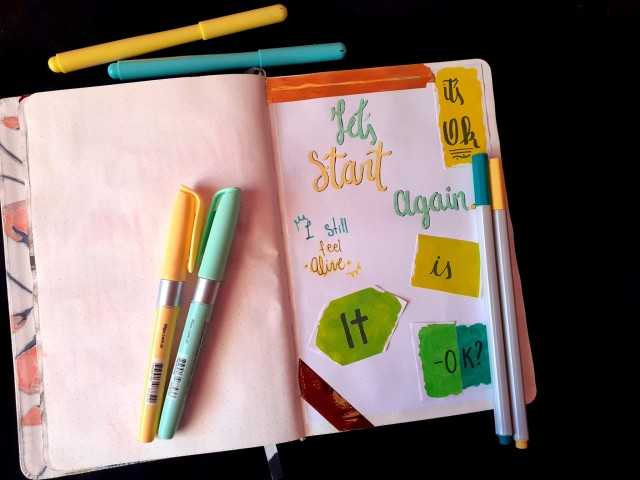 it's
Ok
Let's
Start
Again.
I still
feel
Alive
is
It
-OK?